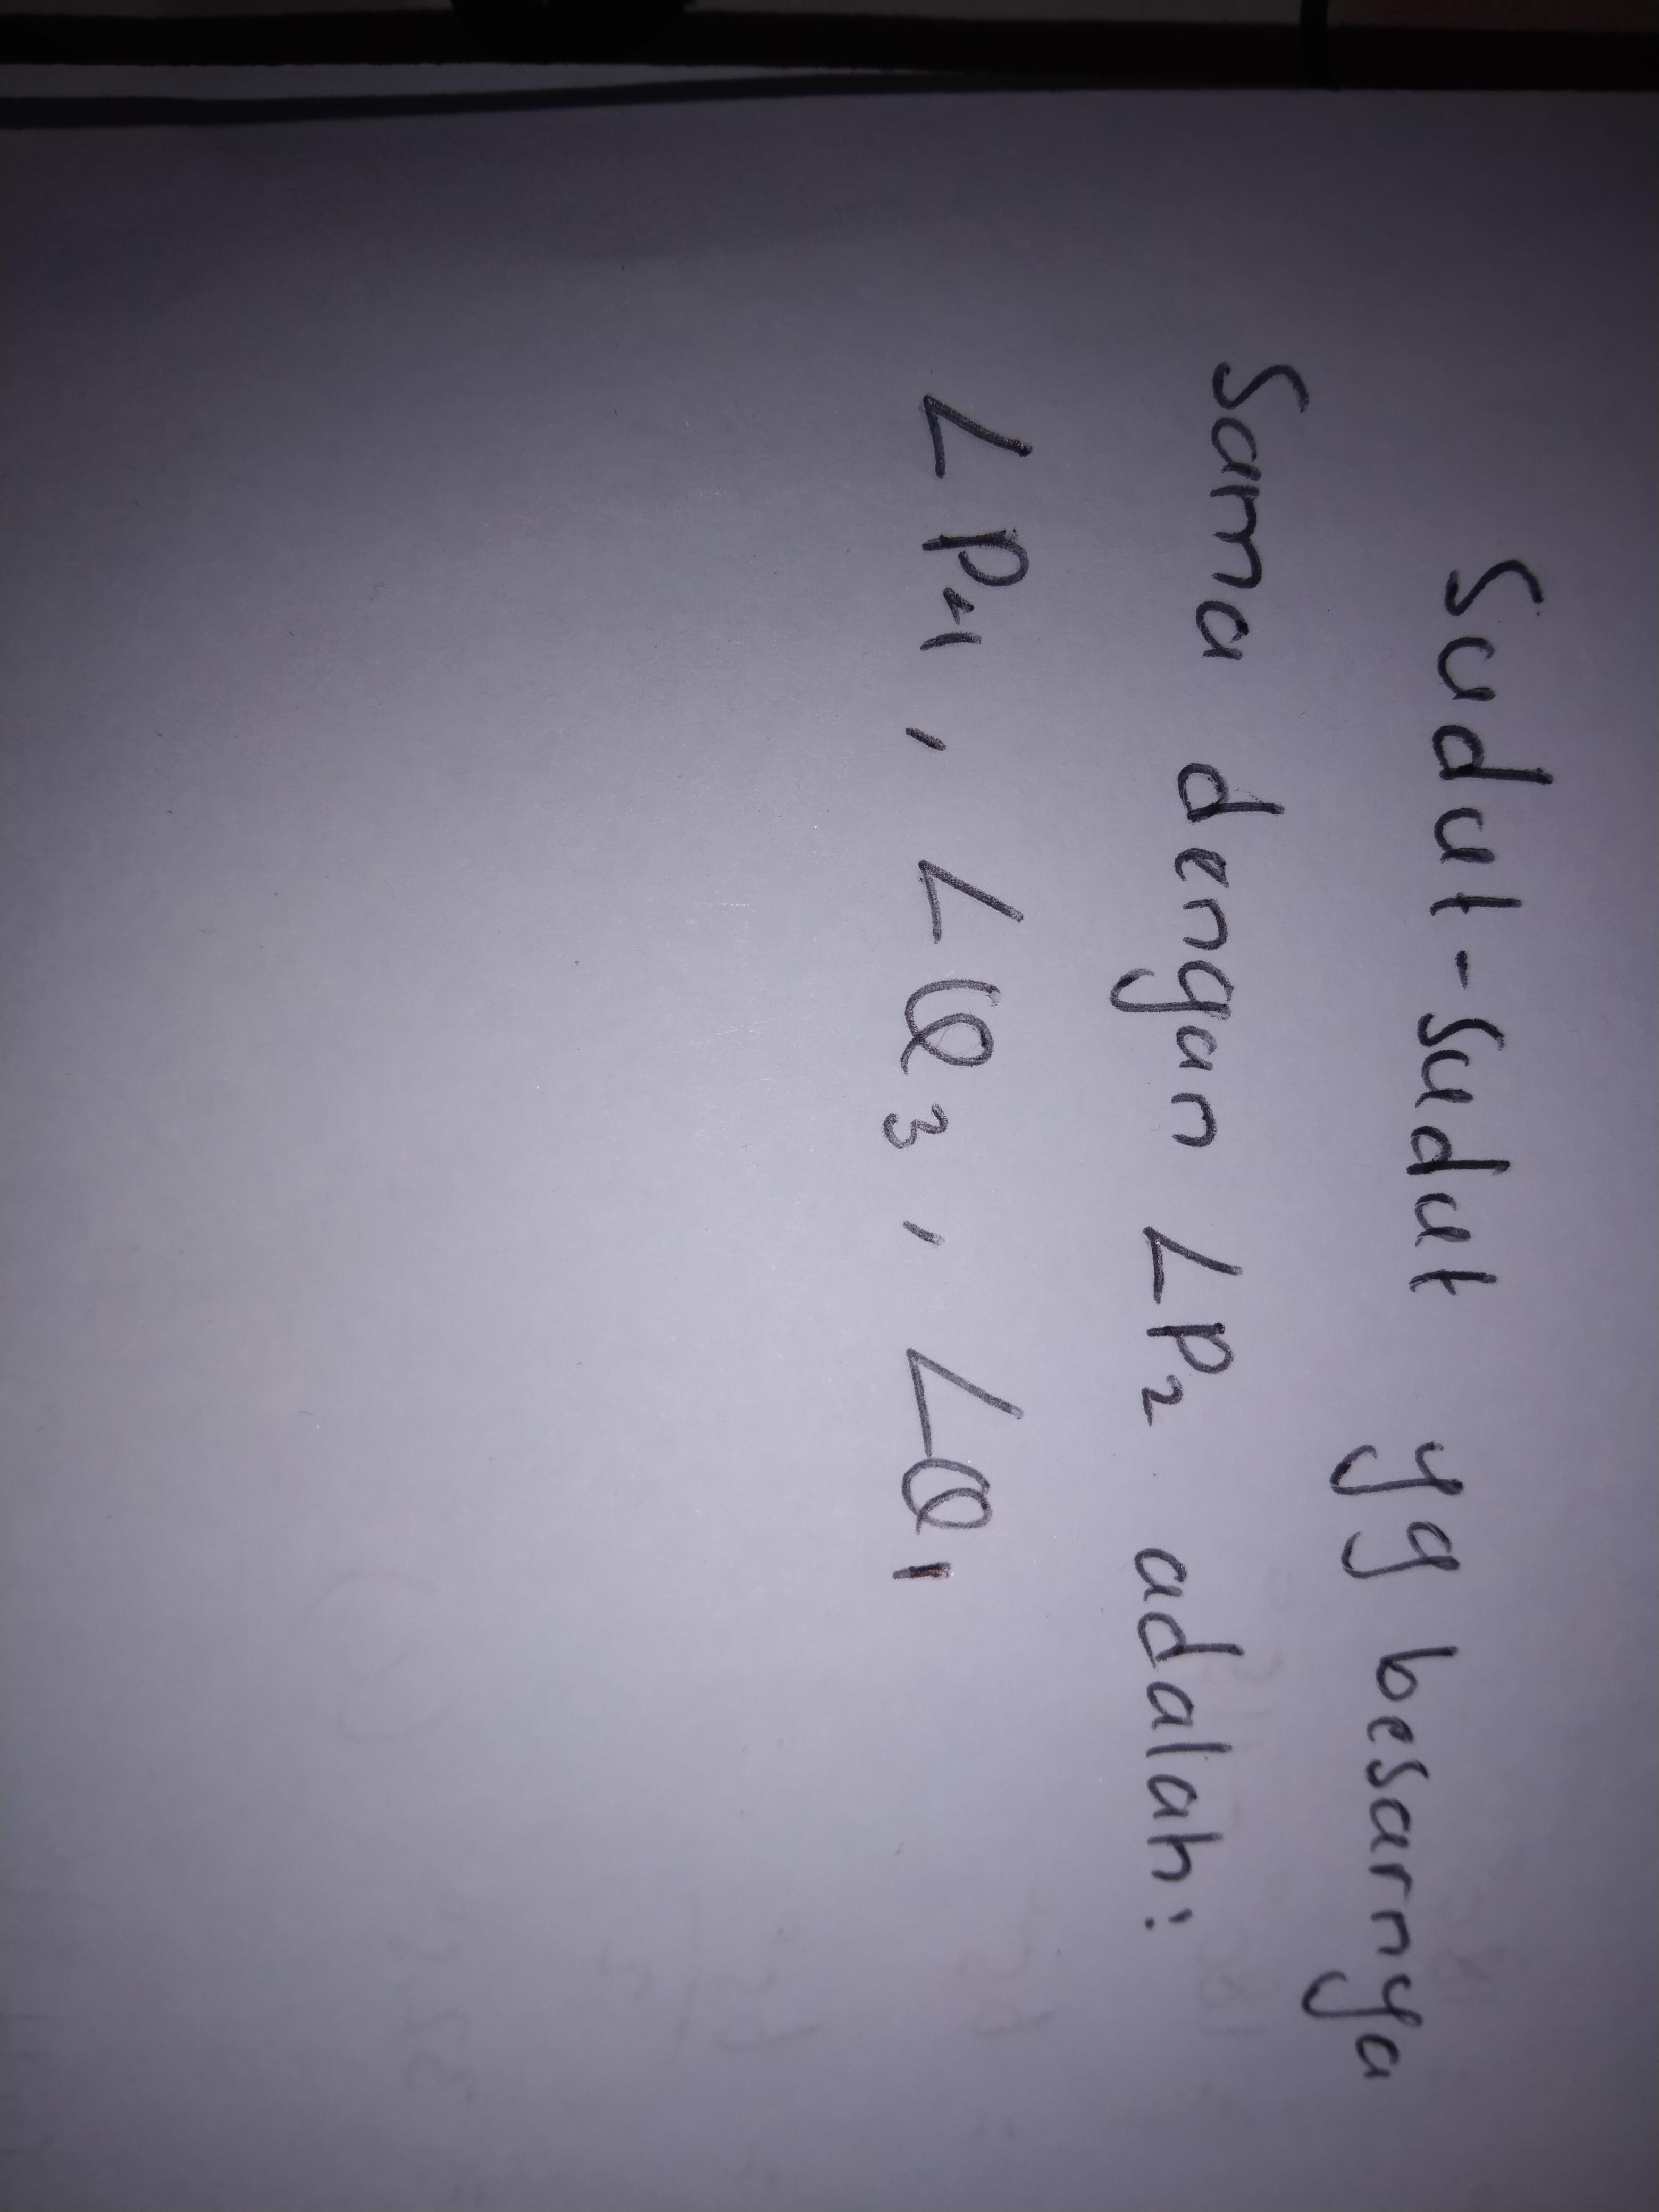 Sudut-sudut yg besarnya
Sama dengan ∠P₂ adalah:
∠P₄, ∠Q₃, ∠Q₁